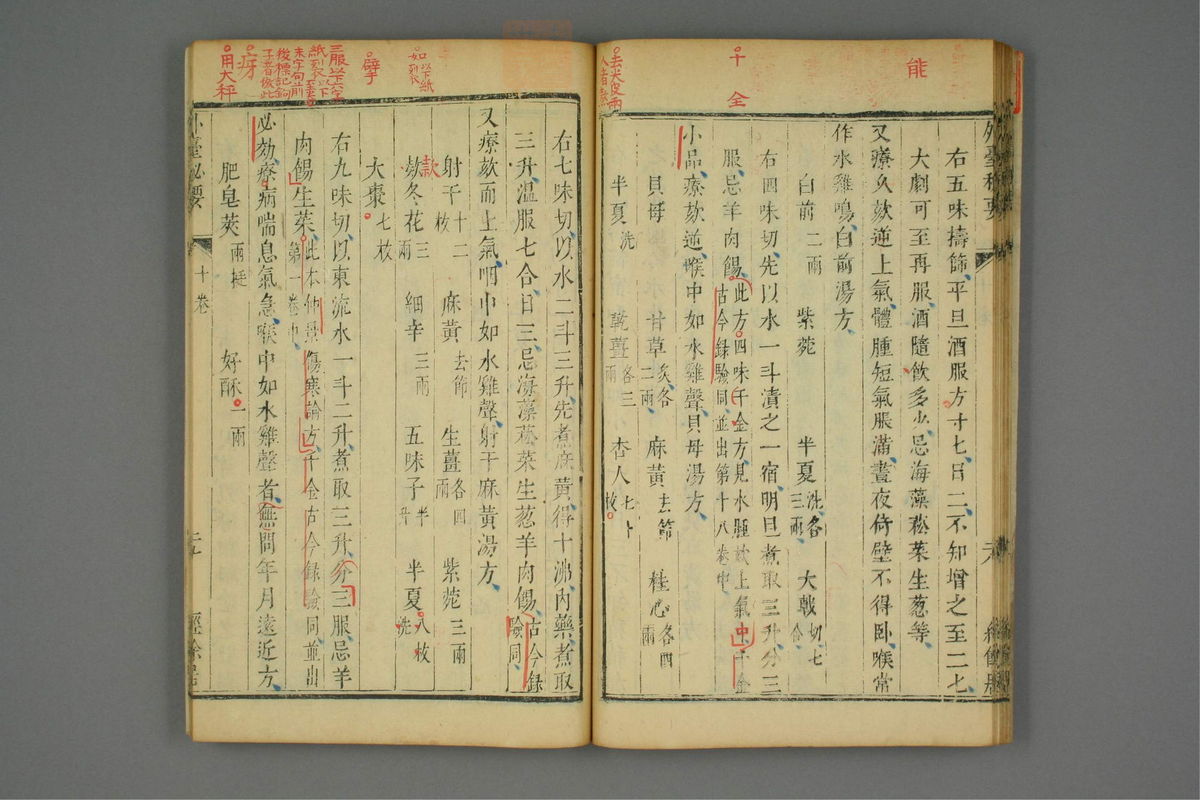 能
千
金
右五味擣篩平旦酒服方寸七日二不知增之至二七
大劇可至再服酒隨飲多少忌海藻菘菜生葱等
又療久欬逆上氣體腫短氣脹滿晝夜倚壁不得卧喉常
作水雞鳴白前湯方
白前二兩 紫菀 半夏洗各三兩 大戟切七合
右四味切先以水一斗漬之一宿明旦煮取三升分三
服忌羊肉餳此方四味千金方見水腫欬上氣中千金
古今録驗同並出第十八卷中
小品療欬逆喉中如水雞聲貝母湯方
貝母 甘草炙各二兩 麻黃去節 桂心各四兩
半夏洗 乾薑各三兩 杏人七十枚
右七味切以水二斗三升先煮麻黃得十沸內藥煮取
三升溫服七合日三忌海藻菘菜生葱羊肉餳古今録驗同
又療欬而上氣咽中如水雞聲射干麻黃湯方
射干十二枚 麻黃去節 生薑各四兩 紫菀三兩
款
欬冬花三兩 細辛三兩 五味子半升 半夏八枚洗
大棗七枚
右九味切以東流水一斗二升煮取三升分三服忌羊
肉餳生菜此本仲景傷寒論方千金古今録驗同並出
第一卷中
必効療病喘息氣急喉中如水雞聲者無問年月遠近方
肥皂莢兩梃 好酥一兩
外臺祕要 十卷
三服以下六字
擘
如以下紙
列衣
用大秤